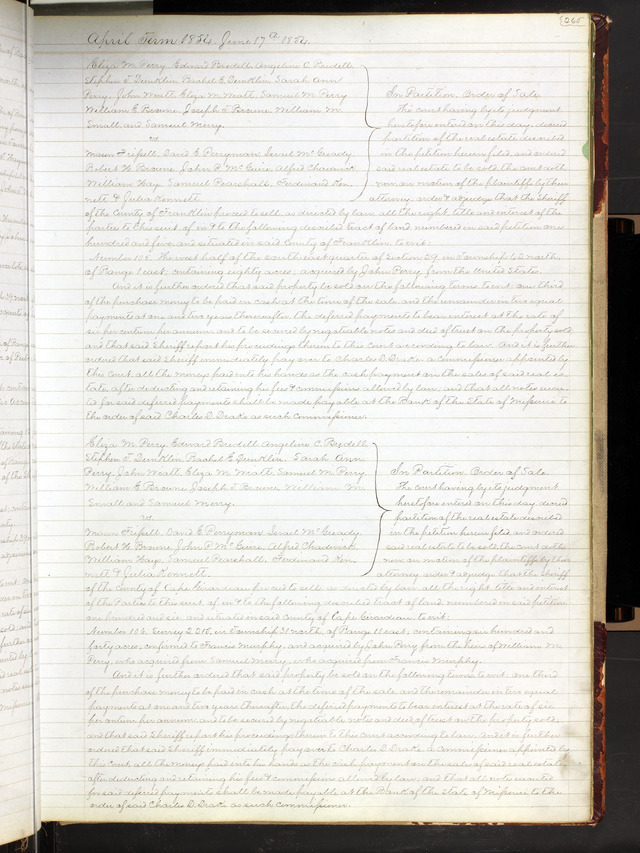 265
April Term 1854. June 17th 1854.
Eliza M. Perry Edward Bredell Angeline C. Bredell
Stephen T Dunklin Rachel E. Dunklin. Sarah Ann
Perry, John Wyatt. Eliza M. Wyatt, Samuel M. Perry
William E. Browne. Joseph T. Browne. William M.
Small. and Samuel Merry.
vs
Mason Frissell, David E. Perryman. Israel McGready
Robert H. Browne. John P. McGuire. Alfred Chadwick
William Hay. Samuel Pearshall. Ferdinand Ken-
nett & Julia Kennett
In Partition. Order of Sale.
The court having by its judgment
heretofore entered on this day, decreed
partition of the real estate described
in the petition herein filed, and ordered
said real estate to be sold, the court doth
now on motion of the plaintiffs by their
attorney, order & adjudge that the sheriff
of the County of Franklin proceed to sell, as directed by law, all the right, title and interest of the
parties to this suit, of in & to the following described tract of land, numbered in said petition one
hundred and five, and situated in said County of Franklin, to wit:
Number 105. The west half of the south east quarter of Section 29, in Township 42 north,
of Range 1 east, containing eighty acres; acquired by John Perry, from the United States.
And it is further ordered that said property be sold on the following terms to wit: one third
of the purchase money to be paid in cash at the time of the sale, and the remainder in two equal
payments at one and two years thereafter, the deferred payments to bear interest at the rate of
six per centum per annum, and to be secured by negotiable notes and deed of trust on the property sold
and that said Sheriff report his proceedings therein to this Court according to law. And it is further
ordered that said Sheriff immediately pay over to Charles D. Drake a commissioner appointed by
this court, all the moneys paid into his hands as the cash payment on the sales of said real es-
tate, after deducting and retaining his fees & commissions allowed by law, and that all notes execu-
ted for said deferred payments shall be made payable at the Bank of the State of Missouri to
the order of said Charles D. Drake as such commissioner.
Eliza M. Perry Edward Bredell Angeline C. Bredell
Stephen T. Dunklin Rachel E Dunklin. Sarah Ann
Perry, John Wyatt. Eliza M. Wyatt. Samuel M. Perry
William E. Browne Joseph T. Browne William M.
Small and Samuel Merry.
vs
Mason Frissell. David E. Perryman. Israel McGready.
Robert H. Browne John P. McGuire. Alfred Chadwick.
William Hay. Samuel Pearshall. Ferdinand Ken-
nett & Julia Kennett.
In Partition. Order of Sale.
The court having by its judgment
heretofore entered on this day, decreed
partition of the real estate described
in the petition herein filed, and ordered
said real estate to be sold, the court doth
now on motion of the plaintiffs by their
attorney order & adjudge that the sheriff
of the County of Cape Girardeau proceed to sell, as directed by law, all the right, title and interest
of the Parties to this suit, of in & to the following described tract of land, numbered in said petition
one hundred and six, and situated in said county of Cape Girardeau, to wit:
Number 106. Survey 2215, in Township 31 north, of Range 11 east, containing six hundred and
forty acres, confirmed to Francis Murphy, and acquired by John Perry from the heirs of William M.
Perry, who acquired from Samuel Merry, who acquired from Francis Murphy.
And it is further ordered that said property be sold on the following terms to wit: one third
of the purchase money to be paid in cash at the time of the sale, and the remainder in two equal
payments at one and two years thereafter, the deferred payments to bear interest at the rate of six
per centum per annum, and to be secured by negotiable notes and deed of trust on the property sold,
and that said Sheriff report his proceedings therein to this Court according to law. And it is further
ordered that said Sheriff immediately pay over to Charles D. Drake a commissioner appointed by
this court, all the moneys paid into his hands as the cash payment on the sale of said real estate
after deducting and retaining his fees & commissions allowed by law, and that all notes executed
for said deferred payments shall be made payable at the Bank of the State of Missouri to the
order of said Charles D. Drake as such commissioner.